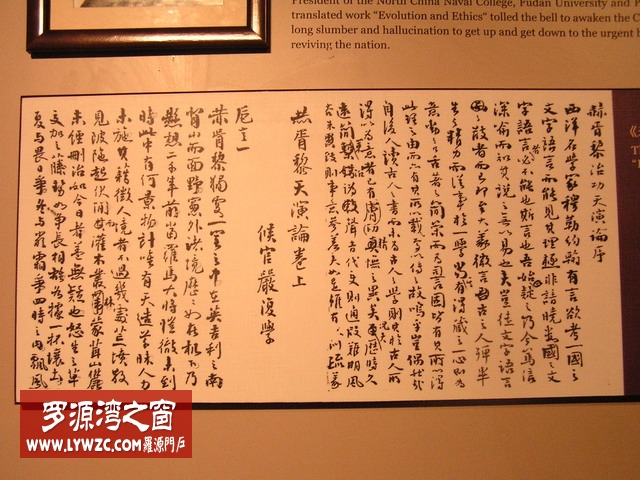 President of the North China Naval College, Fudan University and P
translated work "Evolution and Ethics" tolled the bell to awaken the C
long slumber and hallucination to get up and get down to the urgent b
reviving the nation.
赫胥黎治功天演論序
西洋名學家穆勒約翰有言欲考一國之
文字語言而能見其理極非諳曉數國之文
字語言必不能也斯言也吾始疑之乃今篤信
深喻而知其說之無以易也夫豈徒文字語言
之散者而已即至大義微言古之人殫畢
生之精力而從事於一學當有
此理之由亦有其所以載焉以傳之故嗚呼豈偶然哉
自後人讀古人之書而未為古人之學則其於古人所
得以為意者已有膚切與憮之異矣更歷時久
遠簡牘譌缺聲音代變則通叚難明風
赫胥黎天演論卷上
侯官嚴復學
卮言一
赫胥黎獨處一室之中在英吉利之南
背山而面野窗外諸境歷歷如在机下乃
懸想二千年前當羅馬大將愷徹未到
時此中有何景物計唯有天造草昧人力
未施其藉徵人境者不過幾處荒墳散
見坡陀起伏間而灌木叢蒙茸山麓
未經刪治如今日者蓋無疑也怒生之草
交加之藤勢如爭長相雄各據一抔壤土
夏與畏日爭冬與嚴霜爭四時之內飄風
罗源湾之窗
WWW.LYWZC.COM 羅源門戶